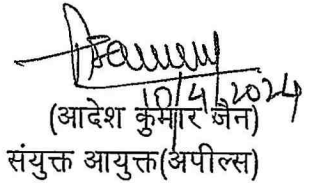 10/4/2024
(आदेश कुमार जैन)
संयुक्त आयुक्त(अपील्स)